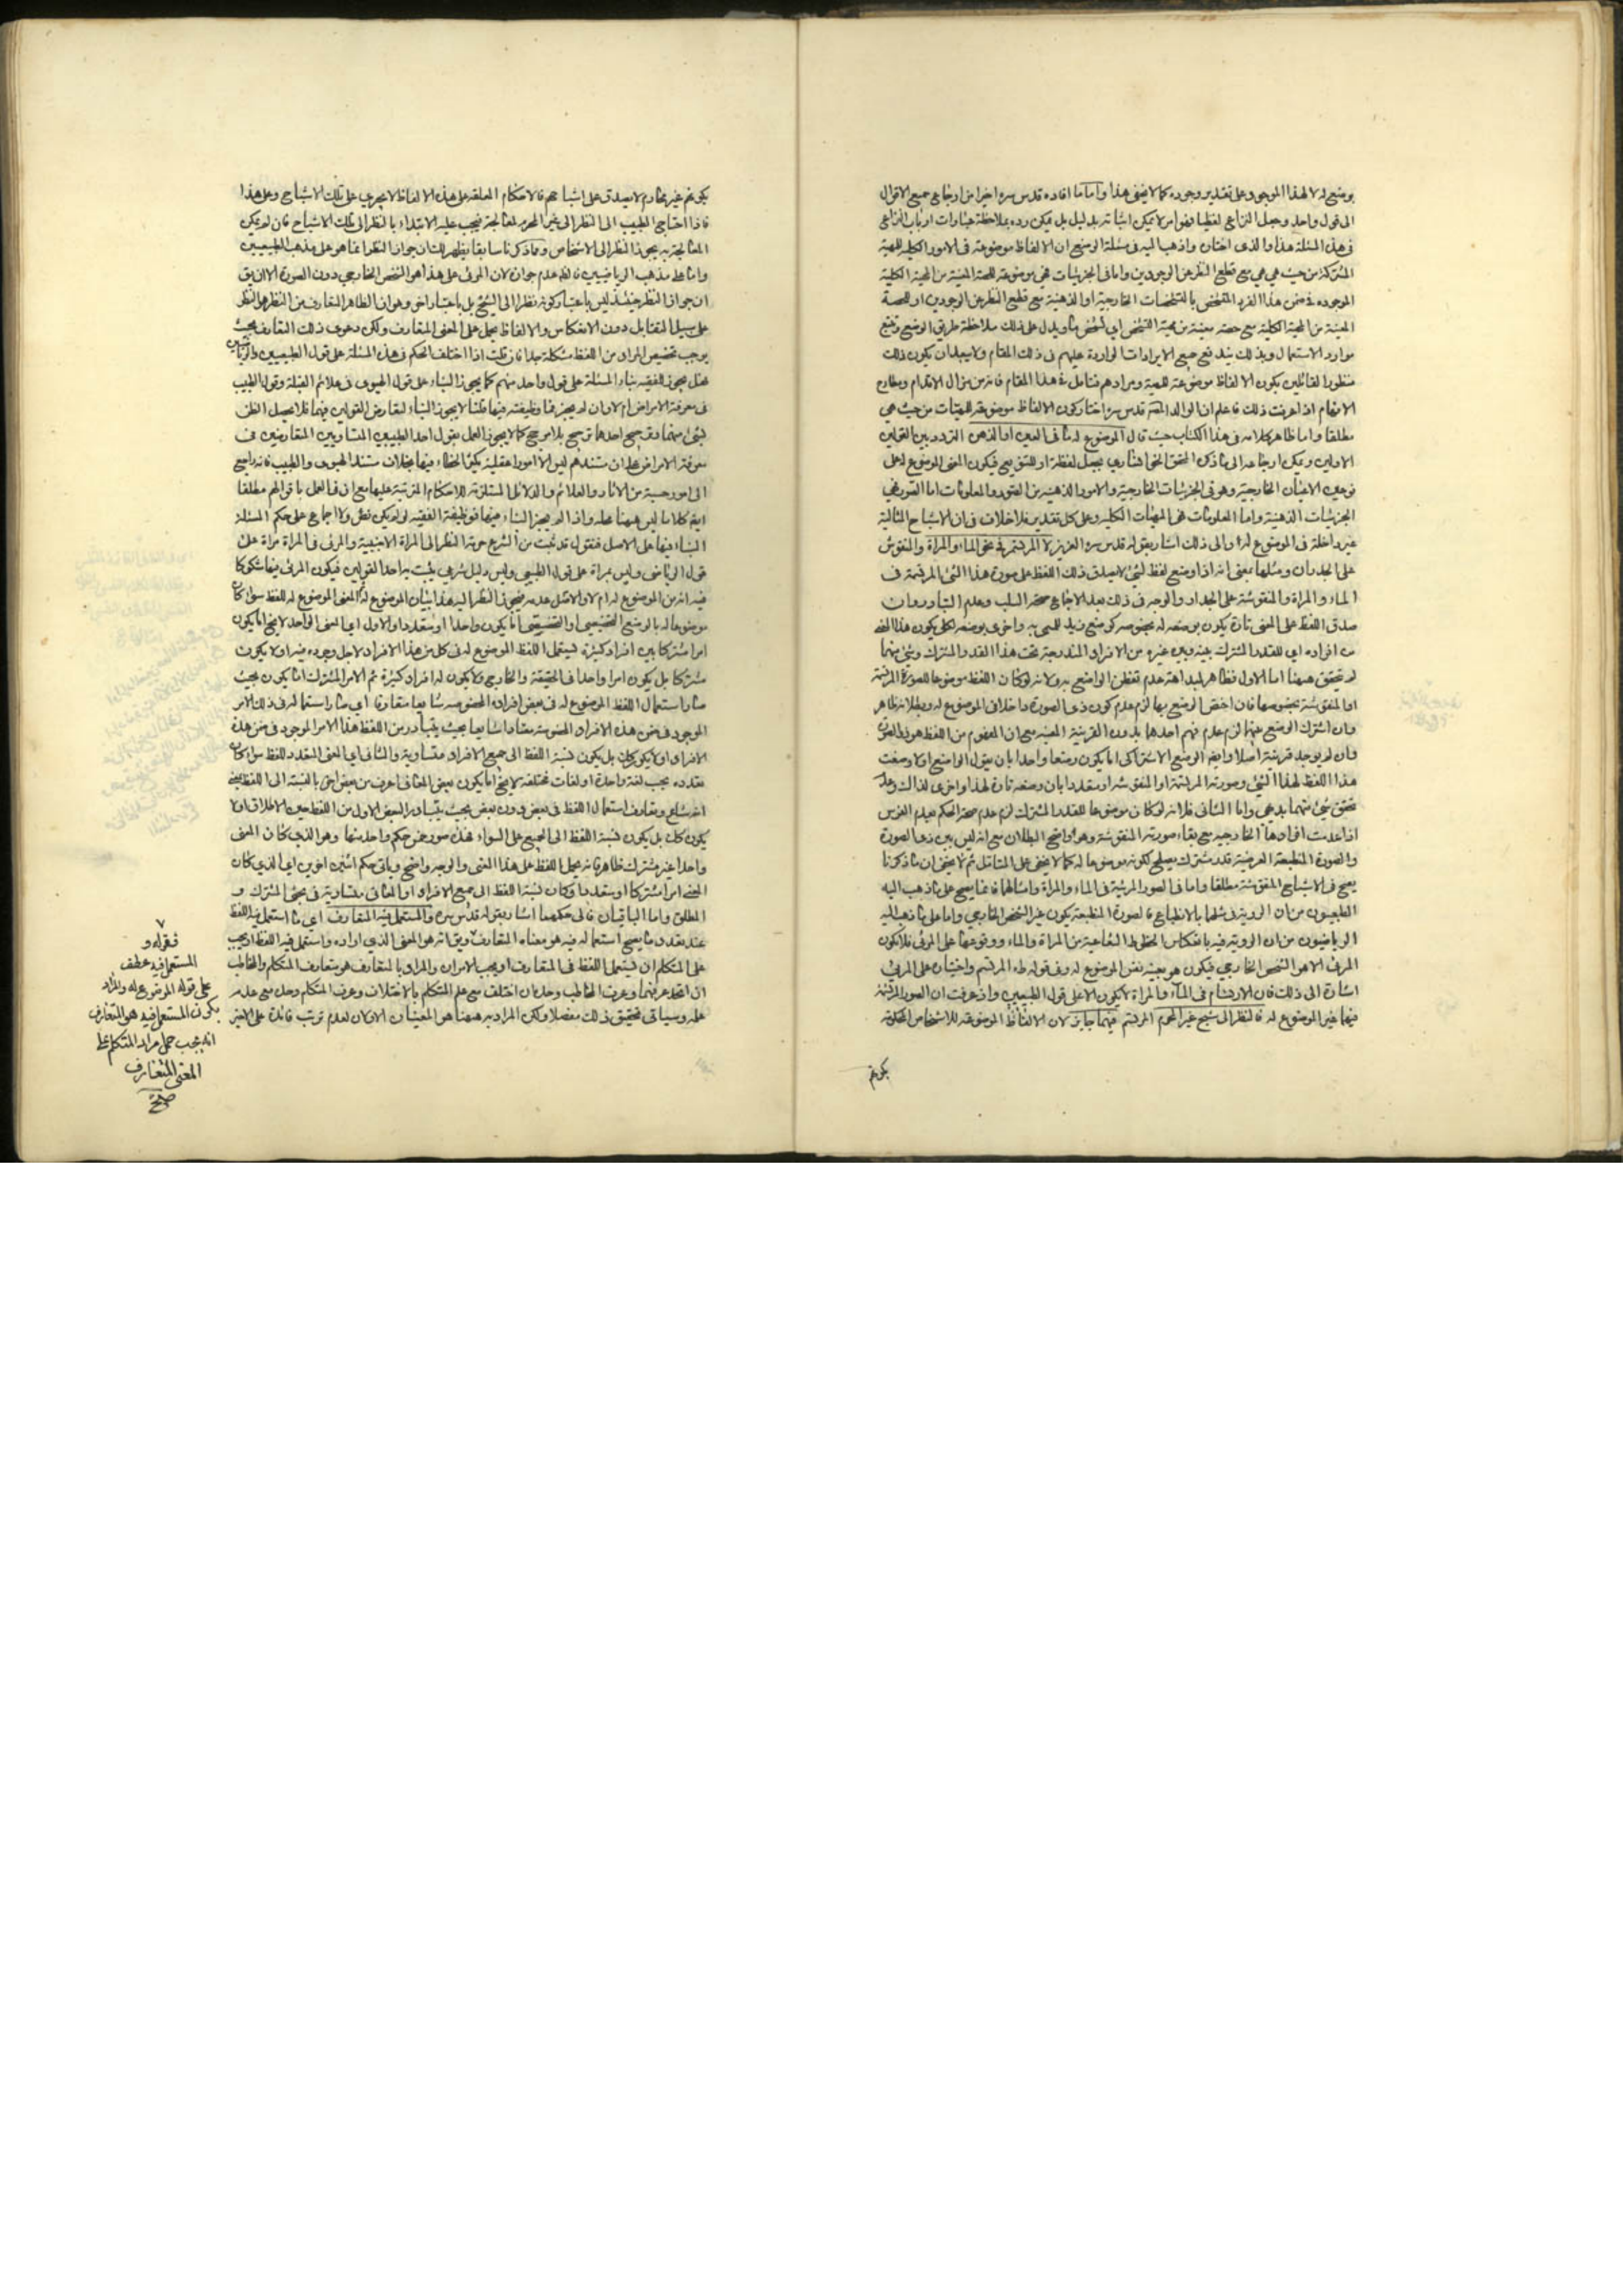 يوضع له لا لهذا الموجود وعلى تقدير وجوده كما لا يخفى هذا واما ما افاده قدس سره اخيرا من ارجاع جميع الاقوال
الى قول واحد وجعل النزاع لفظيا فهو امر لا يمكن اثباته بدليل بل يمكن رده بملاحظة عبارات ارباب النزاع
فى هذه المسئلة هذا والذى اختاره واذهب اليه فى مسئلة الوضع ان الالفاظ موضوعة فى الامور الكلية للمهية
المشتركة من حيث هى هى مع قطع النظر عن الوجودين واما فى الجزئيات فهى موضوعة للحصة المعينة من المهية الكلية
الموجودة فى ضمن هذا الفرد المتشخص بالتشخصات الخارجية او الذهنية مع قطع النظر عن الوجودين او للحصة
المعينة من المهية الكلية مع حصة معينة من مهية التشخص اي تشخص ويدل على ذلك ملاحظة طريق الوضع وتتبع
موارد الاستعمال وبذلك يندفع جميع الايرادات الواردة عليهم فى ذلك المقام ولا يبعد ان يكون ذلك
منظور القائلين بكون الالفاظ موضوعة للمهية ومرادهم فتامل فى هذا المقام فانه من مزال الاقدام ومطارح
الافهام اذا عرفت ذلك فاعلم ان الوالد قدس سره اختار كون الالفاظ موضوعة للمهيات من حيث هى
مطلقا واما ظاهر كلامه فى هذا الكتاب حيث قال الموضوع له ما فى العين او الذهن التردد بين القولين
الاولين ويمكن ارجاعه الى ما ذكره المحقق الخوانسارى بجعل لفظة او للتنويع فيكون المعنى الموضوع له على
نوعين الاعيان الخارجية وهو فى الجزئيات الخارجية والامور الذهنية من الصور والمعلومات اما الصور فهى
الجزئيات الذهنية واما المعلومات فهى المهيات الكلية وعلى كل تقدير فلا خلاف فى ان الاشباح المثالية
غير داخلة فى الموضوع له والى ذلك اشار بقوله قدس سره العزيز لا المرتسم فى نحو الماء والمراة والمنقوش
على الجدران ومثلها بمعنى انه اذا وضع لفظ لشئ لا يصدق ذلك اللفظ على صورة هذا الشئ المرتسمة فى
الماء والمراة والمنقوشة على الجدار والوجه فى ذلك بعد الاجماع صحة السلب وعدم التبادر وان
صدق اللفظ على المعنى تارة يكون بوضعه له بخصوصه كوضع زيد للمسمى به واخرى بوضعه لكلى يكون هذا المعنى
من افراده اي للقدر المشترك بينه وبين غيره من الافراد المندرجة تحت هذا القدر المشترك وشئ منهما
لم يتحقق ههنا اما الاول فظاهر لبداهة عدم تفطن الواضع به ولانه لو كان اللفظ موضوعا للصورة المرتسمة
او المنقوشة بخصوصها فان اختص الوضع بها لزم عدم كون ذى الصورة داخلا فى الموضوع له وبطلانه ظاهر
وان اشترك الوضع بينهما لزم عدم فهم احدهما بدون القرينة المعينة مع ان المفهوم من اللفظ هو ذو الصورة
وان لم يوجد قرينة اصلا وايضا الوضع الاشتراكى اما يكون وضعا واحدا بان يقول الواضع اولا وضعت
هذا اللفظ لهذا الشئ وصورته المرتسمة او المنقوشة او متعددا بان وضعه تارة لهذا واخرى لذاك وعدم
تحقق شئ منهما بديهى واما الثانى فلانه لو كان موضوعا للقدر المشترك لزم عدم صحة الحكم بعدم الفرس
اذا عدمت افرادها الخارجيه مع بقاء صورته المنقوشة وهو واضح البطلان مع انه ليس بين ذى الصورة
والصورة المنطبعة العرضية قدر مشترك يصلح لكونه موضوعا له كما لا يخفى على المتامل ثم لا يخفى ان ما ذكرنا
يصح فى الاشباح المنقوشة مطلقا واما فى الصور المرئية فى الماء والمراة وامثالها فانما يصح على ما ذهب اليه
الطبيعيون من ان الروية فى مثلها بالانطباع فالصورة المنطبعة يكون غير الشخص الخارجي واما على ما ذهب اليه
الرياضيون من ان الروية فيه بانعكاس الخطوط الشعاعية من المراة والماء ووقوعها على المرئى فلا يكون
المرئى الا هو الشخص الخارجي فيكون هو بعينه نفس الموضوع له وفى قوله طه المرتسم واختياره على المرئى
اشارة الى ذلك فان الارتسام فى الماء والمراة لا يكون الا على قول الطبيعيين واذ عرفت ان الصور المرتسمة
فيهما غير الموضوع له فالنظر الى شبح غير المحرم المرتسم فيهما جايز لان الالفاظ الموضوعة للاشخاص المحكومة
بكونهم
بكونهم غير محارم لا يصدق على اشباحهم فالاحكام المعلقة على هذه الالفاظ لا يجري على تلك الاشباح وعلى هذا
فاذا احتاج الطبيب الى النظر الى غير المحرم لمعالجة فيجب عليه الابتداء بالنظر الى تلك الاشباح فان لم يمكن
المعالجة به يجوز النظر الى الاشخاص ومما ذكرنا سابقا يظهر لك ان جواز النظر انما هو على مذهب الطبيعيين
واما على مذهب الرياضيين فالظ عدم جوازه لان المرئى على هذا هو الشخص الخارجي دون الصورة الا ان يق
ان جواز النظر حينئذ ليس باعتبار كونه نظرا الى الشبح بل باعتبار اخر وهو ان الظاهر المتعارف من النظر هو النظر
على سبيل التقابل دون الانعكاس والالفاظ يحمل على المعنى المتعارف ولكن دعوى ذلك التعارف بحيث
يوجب تخصيص المراد من اللفظ مشكلة جدا فان قلت اذا اختلف الحكم فى هذه المسئلة على قول الطبيعيين والرياضيين
فهل يجوز للفقيه بناء المسئلة على قول واحد منهم كما يجوز البناء على قول الهيوى فى علائم القبلة وقول الطبيب
فى معرفة الامراض ام لا وان لم يجز فما وظيفته فيها قلنا لا يجوز البناء لتعارض القولين فيهما فلا يحصل الظن
بشئ منهما وترجيح احدهما ترجيح بلا مرجح كما لا يجوز العمل بقول احد الطبيبين المتساويين المتعارضين فى
معرفة الامراض على ان مستندهم ليس الا امورا عقلية يكثر الخطاء فيها بخلاف مستند الهيوى والطبيب فانه راجع
الى امور حسية من الاثار والعلائم والدلائل المستلزمة للاحكام المترتبة عليها مع ان فى العمل باقوالهم مطلقا
ايضا كلاما ليس ههنا محله واذا لم يجز البناء فيها فوظيفة الفقيه لو لم يكن نص ولا اجماع على حكم المسئلة
البناء فيها على الاصل فنقول قد ثبت من الشرع حرمة النظر الى المراة الاجنبية والمرئى فى المراة مراة على
قول الرياضى وليس بمراة على قول الطبيعى وليس دليل شرعى يثبت به احد القولين فيكون المرئى فيها مشكوكا
فيه انه من الموضوع له ام لا والاصل عدمه فيجوز النظر اليه هذا بيان الموضوع له ثم المعنى الموضوع له للفظ سواء كان
موضوعا له بالوضع التخصيصى او التخصصى اما يكون واحدا او متعددا والاول اي المعنى الواحد لا يخ اما يكون
امرا مشتركا بين افراد كثيرة يستعمل اللفظ الموضوع له فى كل من هذه الافراد لاجل وجوده فيه او لا يكون
مشتركا بل يكون امرا واحدا فى الحقيقة والخارج ولا يكون له افراد كثيرة ثم الامر المشترك اما يكون بحيث
صار استعمال اللفظ الموضوع له فى بعض افراده المخصوصه شايعا متعارفا اي صار استعماله فى ذلك الامر
الموجود فى ضمن هذه الافراد المخصوصة معتادا شايعا بحيث يتبادر من اللفظ هذا الامر الموجود فى ضمن هذه
الافراد او لا يكون كك بل يكون نسبة اللفظ الى جميع الافراد متساوية والثانى اي المعنى المتعدد للفظ سواء كان
تعدده بحسب لغة واحدة او لغات مختلفة لا يخ اما يكون بعض المعانى اعرف من بعض اخر بالنسبة الى اللفظ بمعنى
انه شاع وتعارف استعمال اللفظ فى بعض دون بعض بحيث يتبادر البعض الاول من اللفظ حين الاطلاق او لا
يكون كك بل يكون نسبة اللفظ الى الجميع على السواء فهذه صور خمس حكم واحد منها وهو الذى كان المعنى
واحدا غير مشترك ظاهر فانه يحمل اللفظ على هذا المعنى والوجه واضح وياتى حكم اثنين اخرين اي الذي كان
المعنى امرا مشتركا او متعددا وكان نسبة اللفظ الى جميع الافراد او المعانى متساوية فى بحثى المشترك و
المطلق واما الباقيان فالى حكمهما اشار بقوله قدس سره والمستعمل فيه المتعارف اي ما استعمل فيه اللفظ
عند تعدد ما يصح استعماله فيه هو معناه المتعارف ويق انه هو المعنى الذي اراده واستعمل فيه اللفظ او يجب
على المتكلم ان يستعمل اللفظ فى المتعارف او يجب الامران والمراد بالمتعارف هو متعارف المتكلم والمخاطب
ان اتحد عرفهما وعرف المخاطب وحده ان اختلف مع علم المتكلم بالاختلاف وعرف المتكلم وحده مع عدم
علمه وسياتى تحقيق ذلك مفصلا ولكن المراد به ههنا هو المعنيان الاولان لعدم ترتب فائدة على الاخير
٧
فقوله و
المستعمل فيه عطف
على قوله الموضوع له والمراد
بكون المستعمل فيه هو المتعارف
انه يجب حمل مراد المتكلم على
المعنى المتعارف
صح